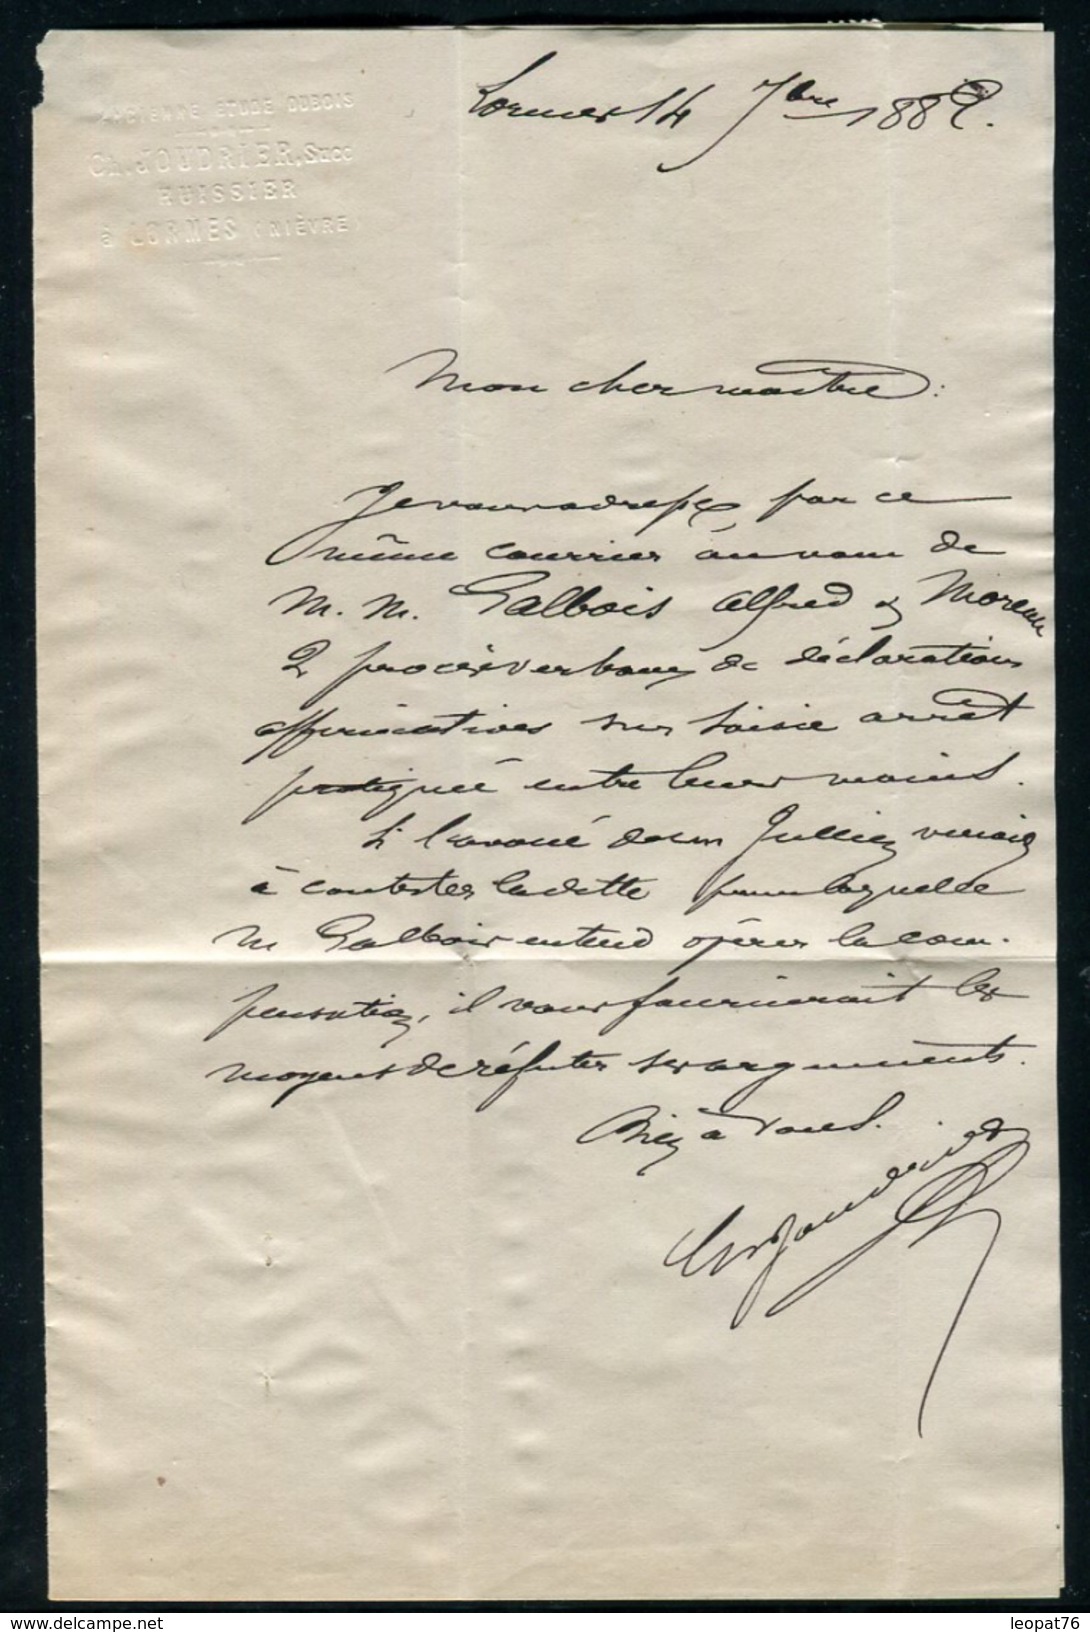 ANCIENNE ÉTUDE DUBOIS
Ch. JOUDRIER, Succ
HUISSIER
à LORMES (NIÈVRE)
Lormes 14 7bre 1882.
Mon cher maître :
Je vous adresse, par ce
même courrier au nom de
M. M. Galbois Alfred & Moreau
2 procès verbaux de déclarations
affirmatives sur saisie arrêt
pratiquée entre leurs mains.
Si l'avoué de Jullien venait
à contester la dette pour laquelle
M Galbois entend opérer la com-
pensation, il vous fournirait les
moyens de réfuter ses arguments.
Bien à vous.
Ch Joudrier
delcampe.net
leopat76